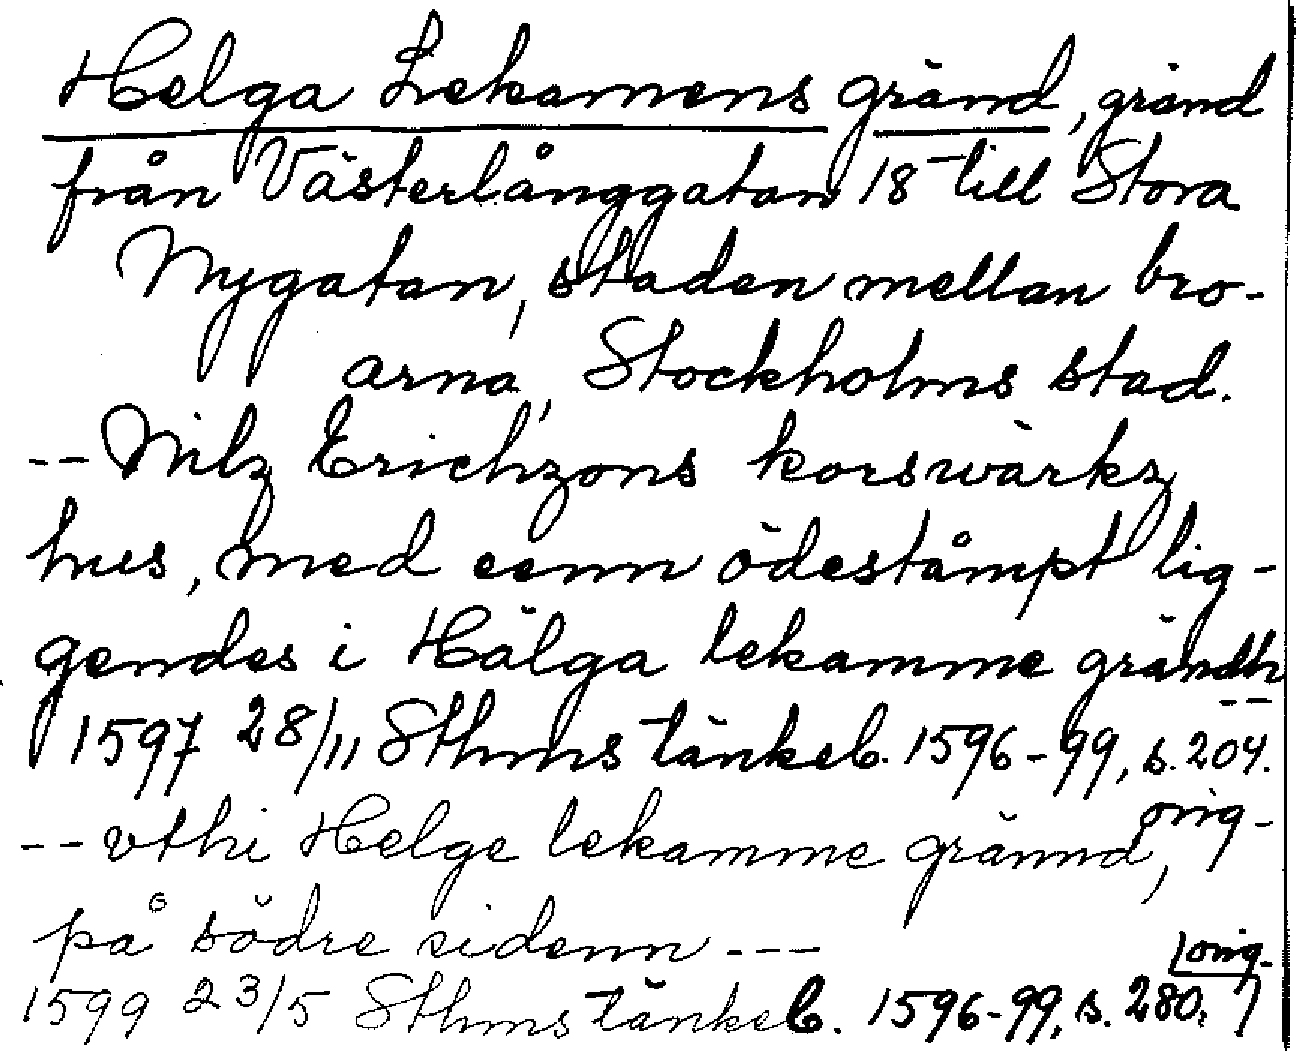 Helga Lekamens gränd, gränd
från Västerlånggatan 18 till Stora
Nygatan, staden mellan bro-
arna, Stockholms stad.
-- Nilz Erichzons korswärkz
hus, med eenn ödeståmpt lig-
gendes i Hälga lekamme grändh --
1597 28/11 Sthms tänkeb. 1596-99, s. 204.
orig-
-- vthi Helge lekamme grännd,
på södre sidenn ---
orig-
1599 23/5 Sthms tänkeb. 1596-99, s. 280.